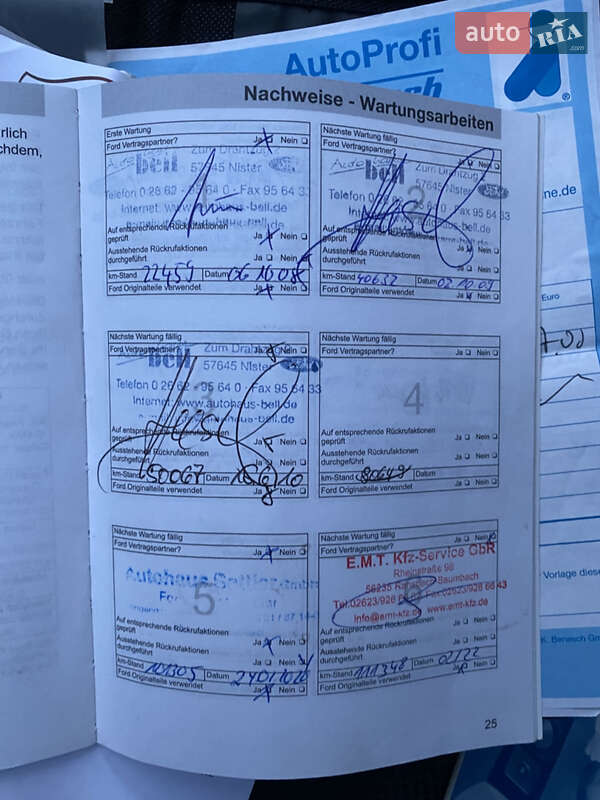 auto RIA .com
AutoProfi
rlich
chdem,
Nachweise - Wartungsarbeiten
Erste Wartung
Ford Vertragspartner? Ja Nein
Auto bell Zum Drahtzug
57645 Nister
Telefon 0 26 62 - 95 64 0 - Fax 95 64 33
Internet: www.autohaus-bell.de
Auf entsprechende Rückrufaktionen
geprüft Ja Nein
Ausstehende Rückrufaktionen
durchgeführt Ja Nein
km-Stand 22459 Datum 06 10 08
Ford Originalteile verwendet Ja Nein
Nächste Wartung fällig
Ford Vertragspartner? Ja Nein
Auto bell Zum Drahtzug
57645 Nister
2
Telefon 0 26 62 - 95 64 0 - Fax 95 64 33
Internet: www.autohaus-bell.de
Auf entsprechende Rückrufaktionen
geprüft Ja Nein
Ausstehende Rückrufaktionen
durchgeführt Ja Nein
km-Stand 40652 Datum 02 10 09
Ford Originalteile verwendet Ja Nein
Nächste Wartung fällig
Ford Vertragspartner? Ja Nein
bell Zum Drahtzug
57645 Nister
Telefon 0 26 62 - 95 64 0 - Fax 95 64 33
Internet: www.autohaus-bell.de
Auf entsprechende Rückrufaktionen
geprüft Ja Nein
Ausstehende Rückrufaktionen
durchgeführt Ja Nein
km-Stand 50067 Datum
Ford Originalteile verwendet Ja Nein
Nächste Wartung fällig
Ford Vertragspartner? Ja Nein
4
Auf entsprechende Rückrufaktionen
geprüft Ja Nein
Ausstehende Rückrufaktionen
durchgeführt Ja Nein
km-Stand 80649 Datum
Ford Originalteile verwendet Ja Nein
Nächste Wartung fällig
Ford Vertragspartner? Ja Nein
Autohaus
5
Auf entsprechende Rückrufaktionen
geprüft Ja Nein
Ausstehende Rückrufaktionen
durchgeführt Ja Nein
km-Stand 101305 Datum
Ford Originalteile verwendet Ja Nein
Nächste Wartung fällig
Ford Vertragspartner? Ja Nein
E.M.T. Kfz-Service GbR
Rheinstraße 98
56235 Ransbach-Baumbach
www.emt-kfz.de
Info@emt-kfz.de
Auf entsprechende Rückrufaktionen
geprüft Ja Nein
Ausstehende Rückrufaktionen
durchgeführt Ja Nein
km-Stand 111348 Datum 02/22
Ford Originalteile verwendet Ja Nein
25
ne.de
Euro
Vorlage diese
K. Berwesch Gm